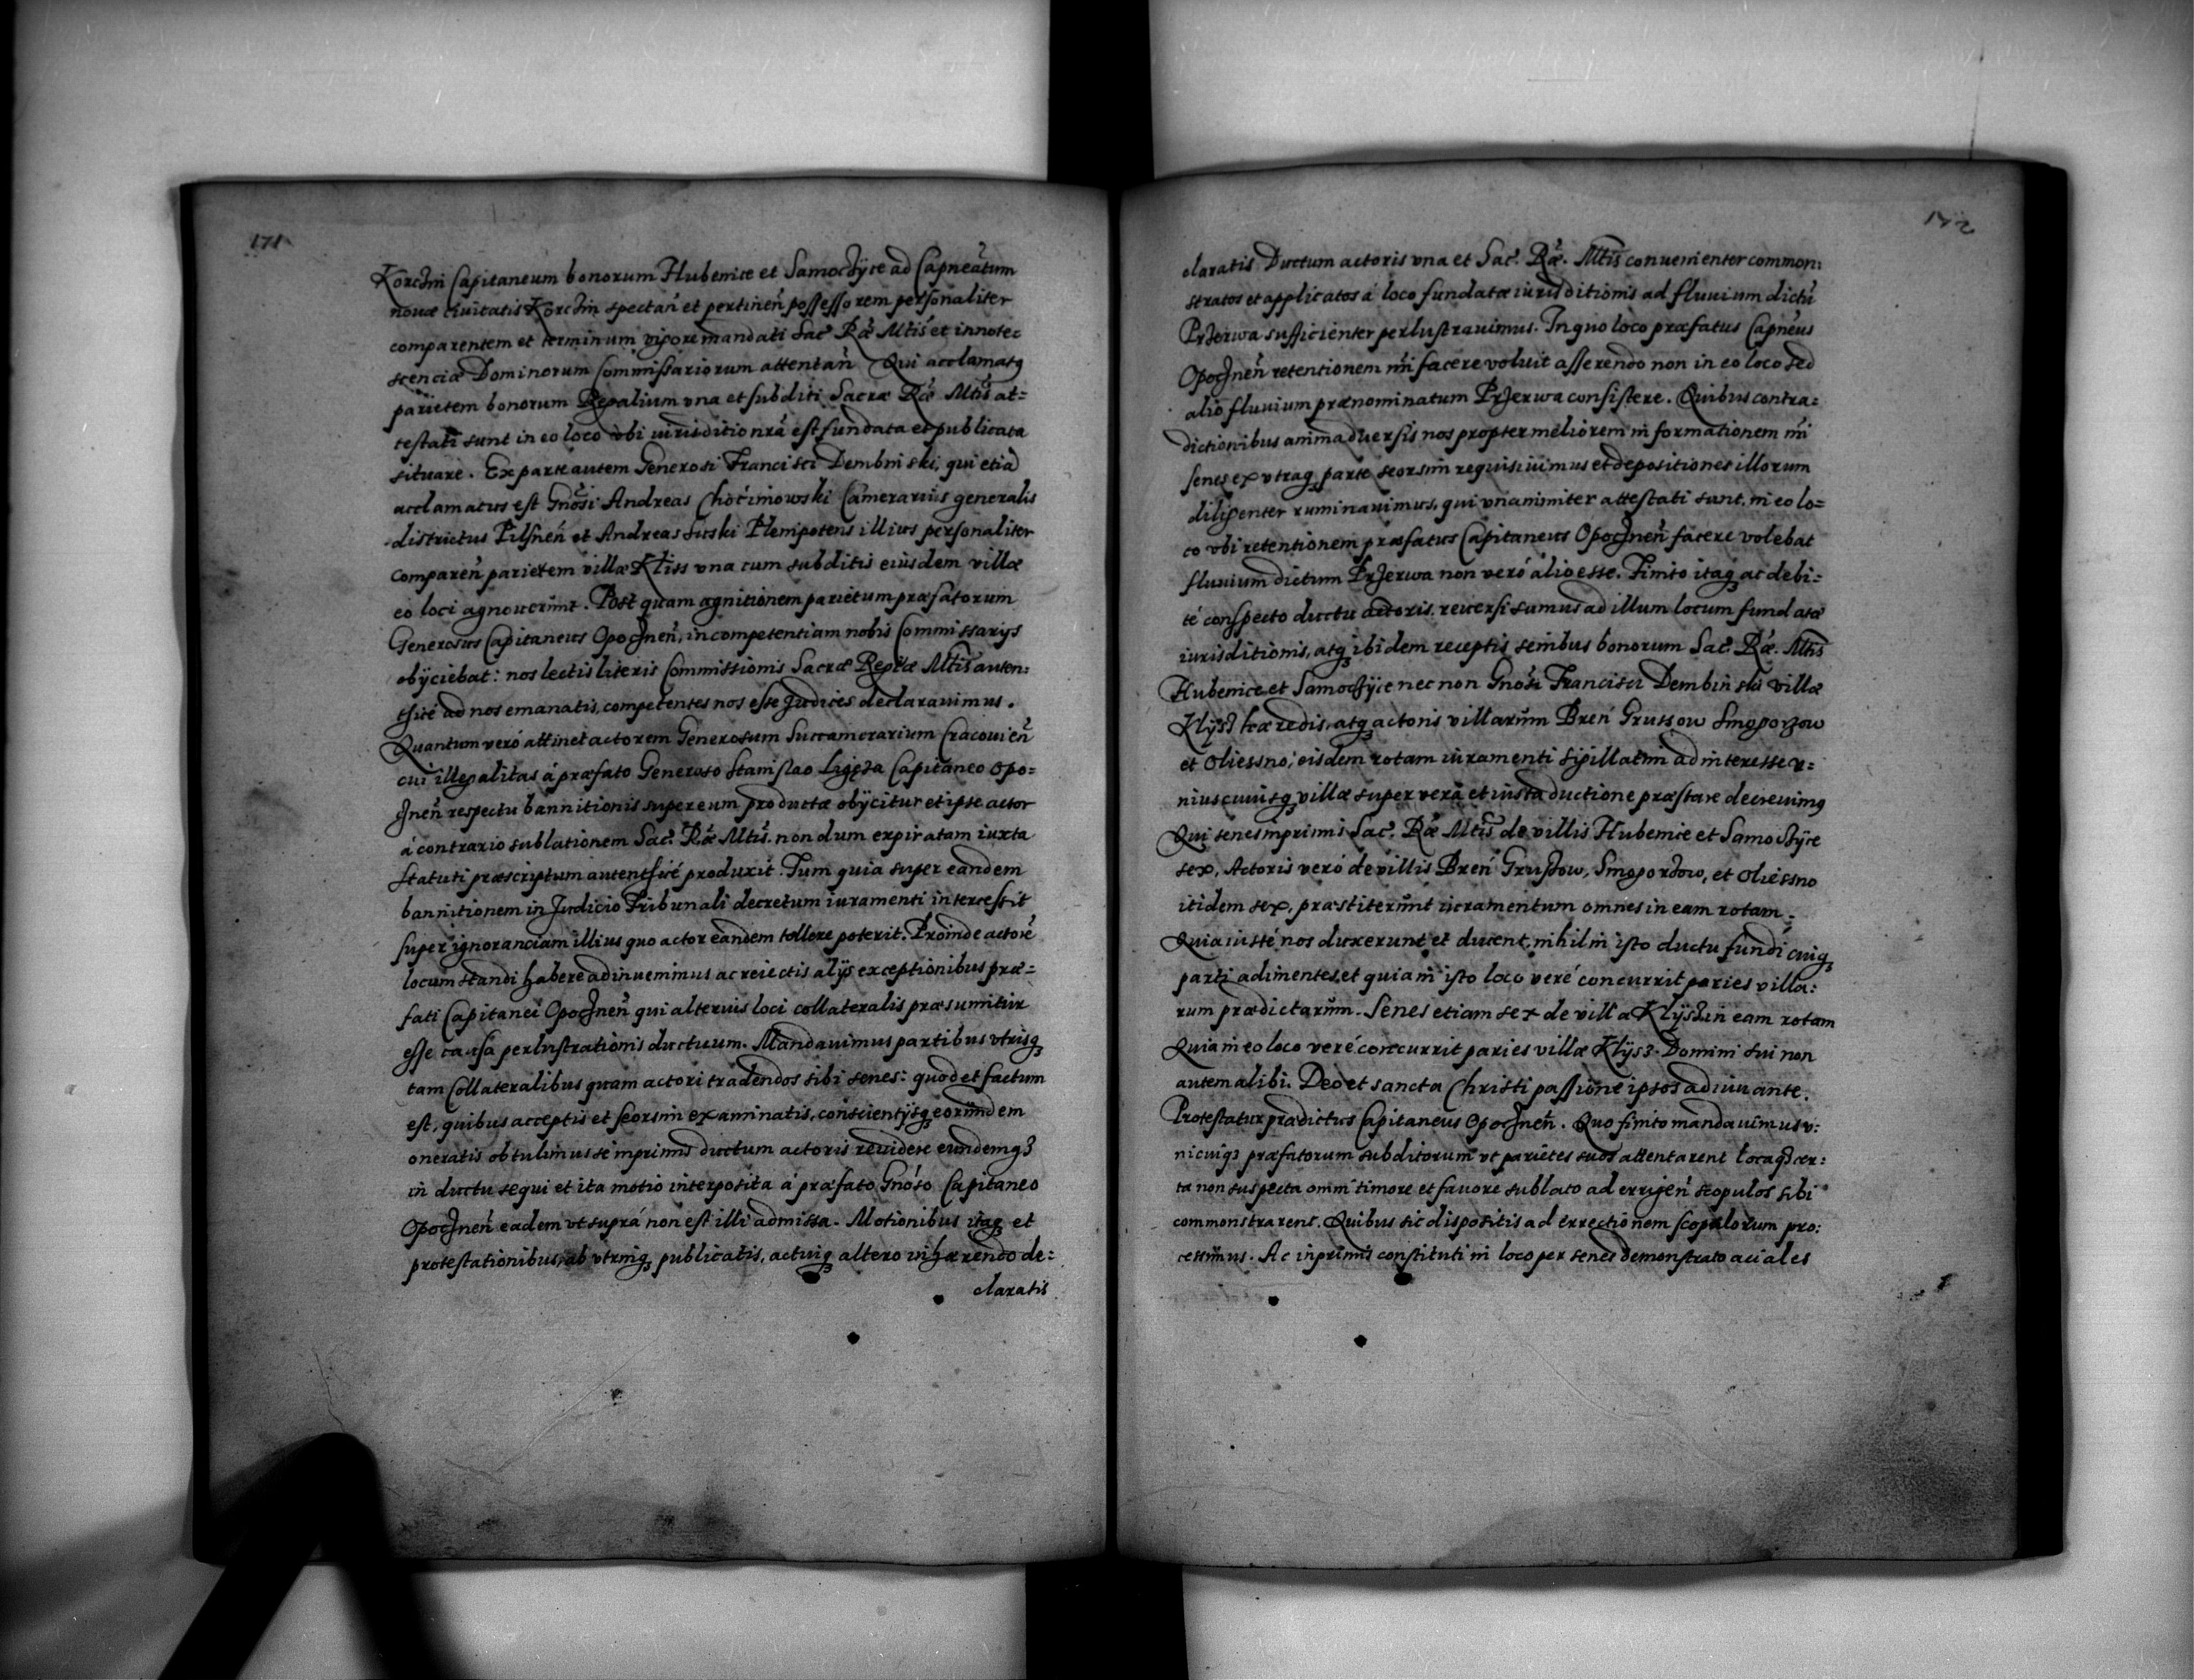 171
Korczin Capitaneum bonorum Hubenice et Samocżÿce ad Capneātum
nouæ Ciuitatis Korczin spectañ et pertineñ possessorem personaliter
comparentem et terminum vigore mandati Sac Ræ Mtis et innotec
scenciæ Dominorum Commissariorum attentañ Qui acclamatq
parietem bonorum Regalium vna et subditi Sacræ Ræ Mtis at=
testati sunt in eo loco vbi iurisditio nrā est fundata et publicata
situare. Ex parte autem Generosi Francisci Dembinski, qui etiā
acclamatus est Gnosi Andreas Choćimowski Camerarius generalis
districtus Pilsneñ et Andreas Suski Plenipotens illius personaliter
Compareñ parietem villæ Kliss vna cum subditis eiusdem villæ
eo loci agnouerunt. Post quam agnitionem parietum præfatorum
Generosus Capitaneus Opoczneñ, incompetentiam nobis Commissarijs
obÿciebat: nos lectis literis Commissionis Sacræ Regiæ Mtis auten:
thicé ad nos emanatis, competentes nos esse Judices declarauimus.
Quantum veró attinet actorem Generosum Succamerarium Cracouieñ
cui illegalitas á præfato Generoso Stanislao Ligęza Capitaneo Opo=
czneñ respectu bannitionis super eum productæ obÿcitur et ipse actor
á contrario sublationem Sac. Ræ Mtis. nondum expiratam iuxta
Statuti præscriptum autenthicé produxit. Tum quia super eandem
bannitionem in Judicio Tribunali decretum iuramenti intercessit
super ignoranciam illius quo actor eandem tollere poterit. Proinde actorē
locum standi habere adinuenimus ac reiectis alijs exceptionibus præ=
fati Capitanei Opoczneñ qui alterius loci collateralis præsumitur
esse causa perlustrationis ductuum. Mandauimus partibus vtrisq3
tam Collateralibus quam actori tradendos sibi senes: quod et factum
est, quibus acceptis et seorsim examinatis, conscientijsq3 eorundem
oneratis obtulimus se inprimis ductum actoris reuidere eundemq3
in ductu sequi et ita motio interposita á præfato Gnoso Capitaneo
Opoczneñ eadem vt suprá non est illi admissa. Motionibus itaq3 et
protestationibus, ab vtrinq3 publicatis, actuiq3 altero inhærendo de:
claratis
172
claratis Ductum actoris vna et Sac. Ræ. Mtis conuenienter common:
stratos et applicatos á loco fundatæ iurisditionis ad fluuium dictū
Przerwa sufficienter perlustrauimus. In quo loco præfatus Capneus
Opoczneñ retentionem nri facere voluit asserendo non in eo loco sed
alio fluuium prænominatum Przerwa consistere. Quibus contra=
dictionibus animaduersis nos propter meliorem informationem nri
senes ex vtraq3 parte seorsim requisiuimus et depositiones illorum
diligenter ruminauimus, qui vnanimiter attestati sunt, in eo lo=
co vbi retentionem præfatus Capitaneus Opoczneñ facere volebat
fluuium dictum Przerwa non veró alio esse. Finito itaq3 ac debi=
té conspecto ductu actoris, reuersi sumus ad illum locum fundatæ
iurisditionis, atq3 ibidem receptis senibus bonorum Sac. Ræ. Mtis
Hubenice et Samocżÿce nec non Gnosi Francisci Dembinski villæ
Klÿsz hæredis, atq3 actoris villarum Breń Grussow Smogorzow
et Oliessno, eisdem rotam iuramenti sigillatim ad interesse v=
niuscuiusq3 villæ super verā et iusta ductione præstare decreuimq
Qui senes inprimis Sac. Ræ Mtis de villis Hubenice et Samocżÿce
sex, Actoris veró de villis Breń Gruszow, Smogorzow, et Oliessno
itidem sex, præstiterunt iuramentum omnes in eam rotam.
Quia iusté nos duxerunt et ducent, nihil in isto ductu fundi cuiq3
parti adimentes, et quia in isto loco veré concurrit paries villa:
rum prædictarum. Senes etiam sex de villa Klÿsz, in eam rotam
Quia in eo loco veré concurrit paries villæ Klÿs3. Domini sui non
autem alibi. Deo et sancta Christi passione ipsos adiuuante.
Protestatur prædictus Capitaneus Opoczneñ. Quo finito mandauimus v:
nicuiq3 præfatorum subditorum vt parietes suos attentarent locaq3 cer:
ta non suspecta omni timore et fauore sublato ad errigeñ scopulos sibi
commonstrarent. Quibus sic dispositis ad errectionem scopulorum pro:
cessimus. Ac inprimis constituti in loco per senes demonstrato aciales